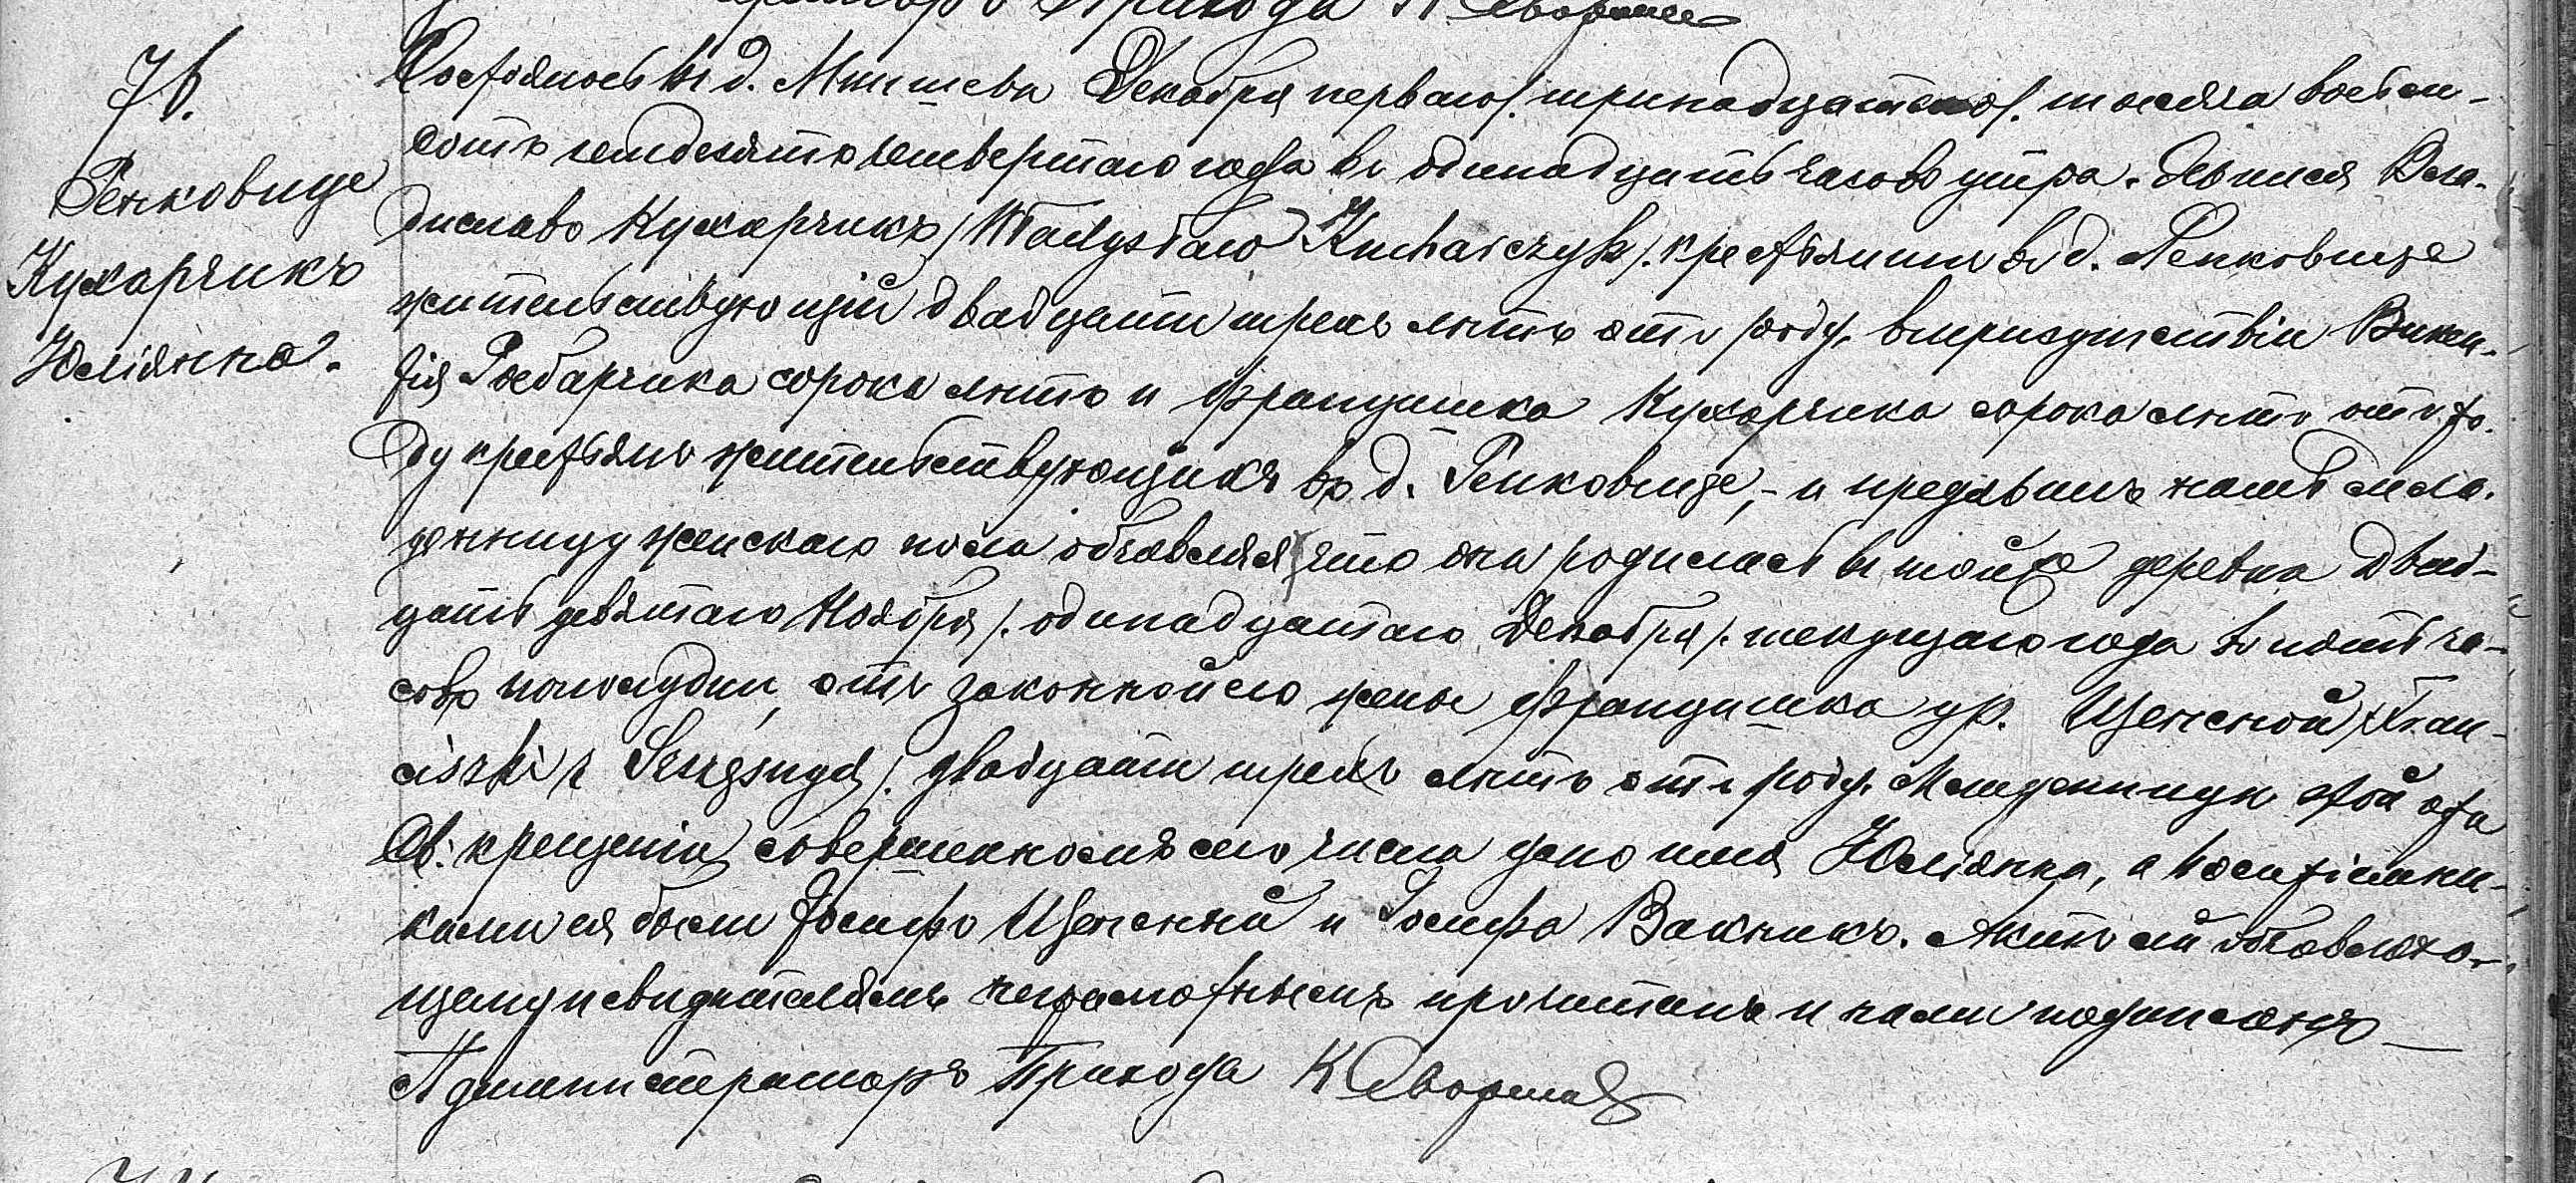 Прихода К
76.
Ренковице
Кухарчикъ
Юліянна.
Состоялось въ д. Декабря перваго/. тринадцатаго/. тысяча восемь-
сотъ четвертаго года въ одинадцать часовъ утра. Явился Вла-
диславъ Кухарчикъ /Władysław Kucharczyk/. крестьянинъ въ д. Ренковице
жительствующій двадцати трехъ лѣтъ отъ роду, въ присутствіи Викен-
тія сорока лѣтъ и Францишка Кухарчика сорока лѣтъ отъ ро-
ду крестьянъ жительствующихъ въ д. Ренковице, - и предъявилъ намъ мла-
денницу женскаго пола объявляя что она родилась въ тойже деревнѣ двад-
цать девятаго Ноября /. одинадцатаго Декабря /. текущаго года въ пять ча-
совъ пополудни, отъ законной его жены Францишка ур. Щенсной /Fran-
ciszki z двадцати трехъ лѣтъ отъ роду. Младенницѣ этой на
Св: крещеніи совершенномъ сего числа дано имя Юліянна, а воспріемни-
ками ея были Іосифъ Щенсный и Іосифа Актъ сей объявляю-
щему и свидѣтелямъ неграмотнымъ прочитанъ и нами подписанъ
Администраторъ Прихода К